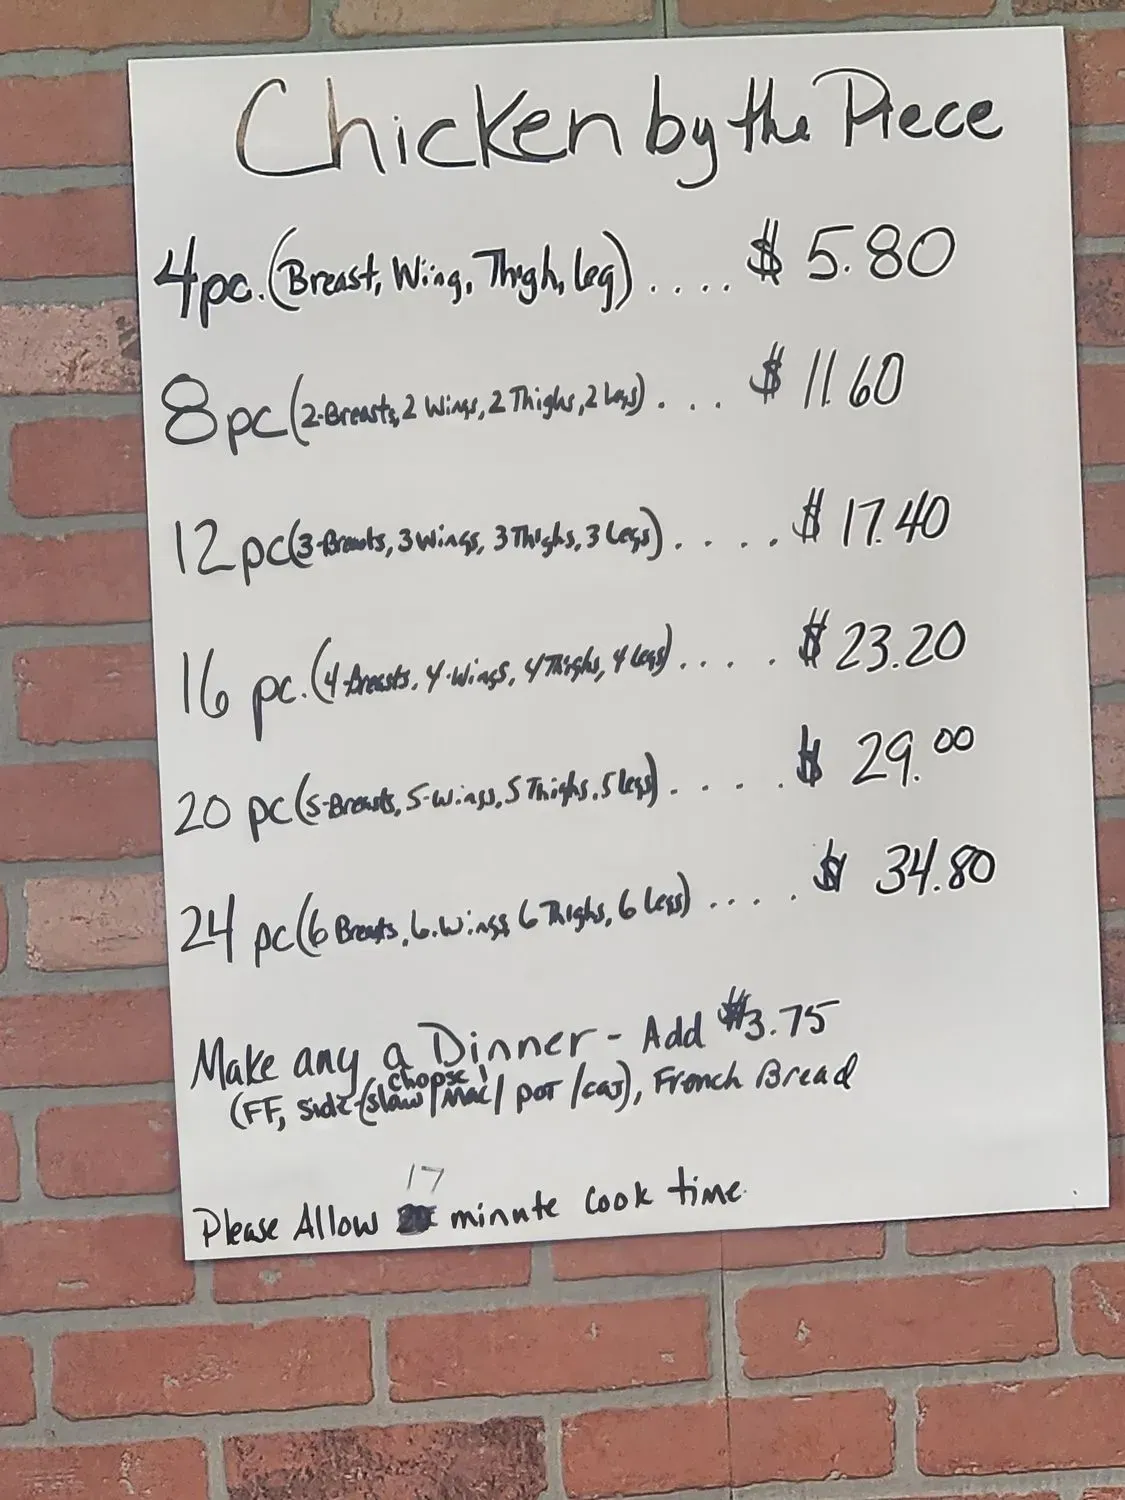 Chicken by the Piece
4pc. (Breast, Wing, Thigh, leg) .... $ 5.80
8pc (2-Breasts, 2 Wings, 2 Thighs, 2 Legs) ... $ 11.60
12pc (3-Breasts, 3 Wings, 3 Thighs, 3 Legs) .... $ 17.40
16 pc. (4-Breasts, 4-Wings, 4 Thighs, 4 Legs) .... $ 23.20
20 pc (5-Breasts, 5-Wings, 5 Thighs, 5 Legs) .... $ 29.00
24 pc (6 Breasts, 6-Wings, 6 Thighs, 6 Legs) .... $ 34.80
Make any a Dinner - Add $3.75
choose 1
(FF, Side-(slaw/Mac/pot/caj), French Bread
17
Please Allow minute Cook time.